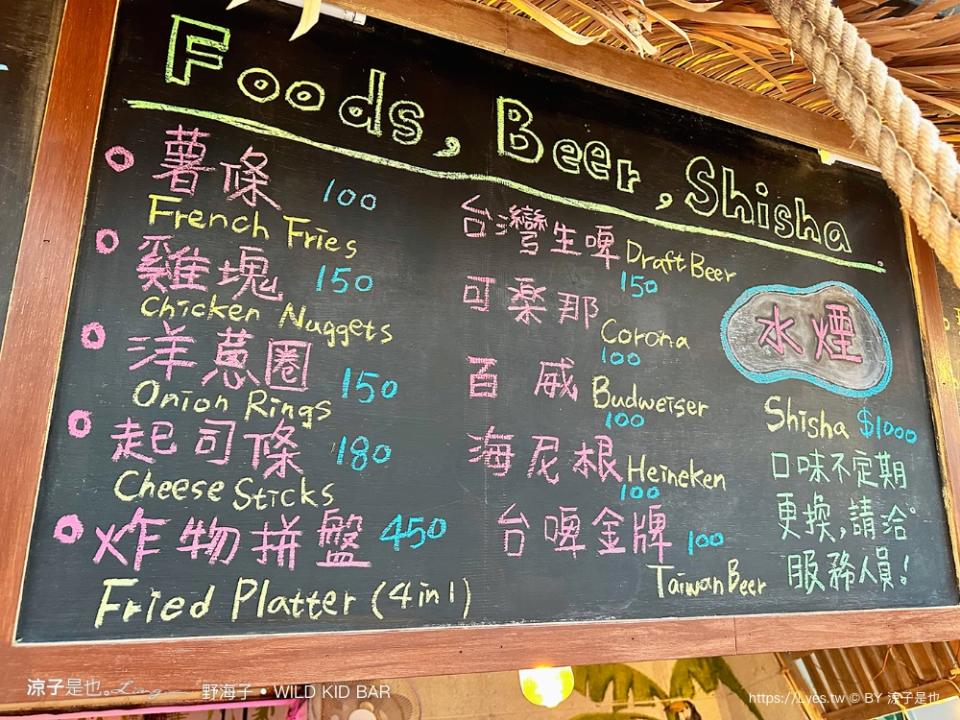 Foods, Beer, Shisha
薯條 100
French Fries
雞塊 150
Chicken Nuggets
洋蔥圈 150
Onion Rings
起司條 180
Cheese Sticks
炸物拼盤 450
Fried Platter (4in1)
台灣生啤 Draft Beer
150
可樂那
Corona
100
百威
Budweiser
100
海尼根 Heineken
100
台啤金牌 100
Taiwan Beer
水煙
Shisha $1000
口味不定期
更換,請洽
服務人員!
涼子是也。 野海子 • WILD KID BAR
https://Lyes.tw © BY 涼子是也